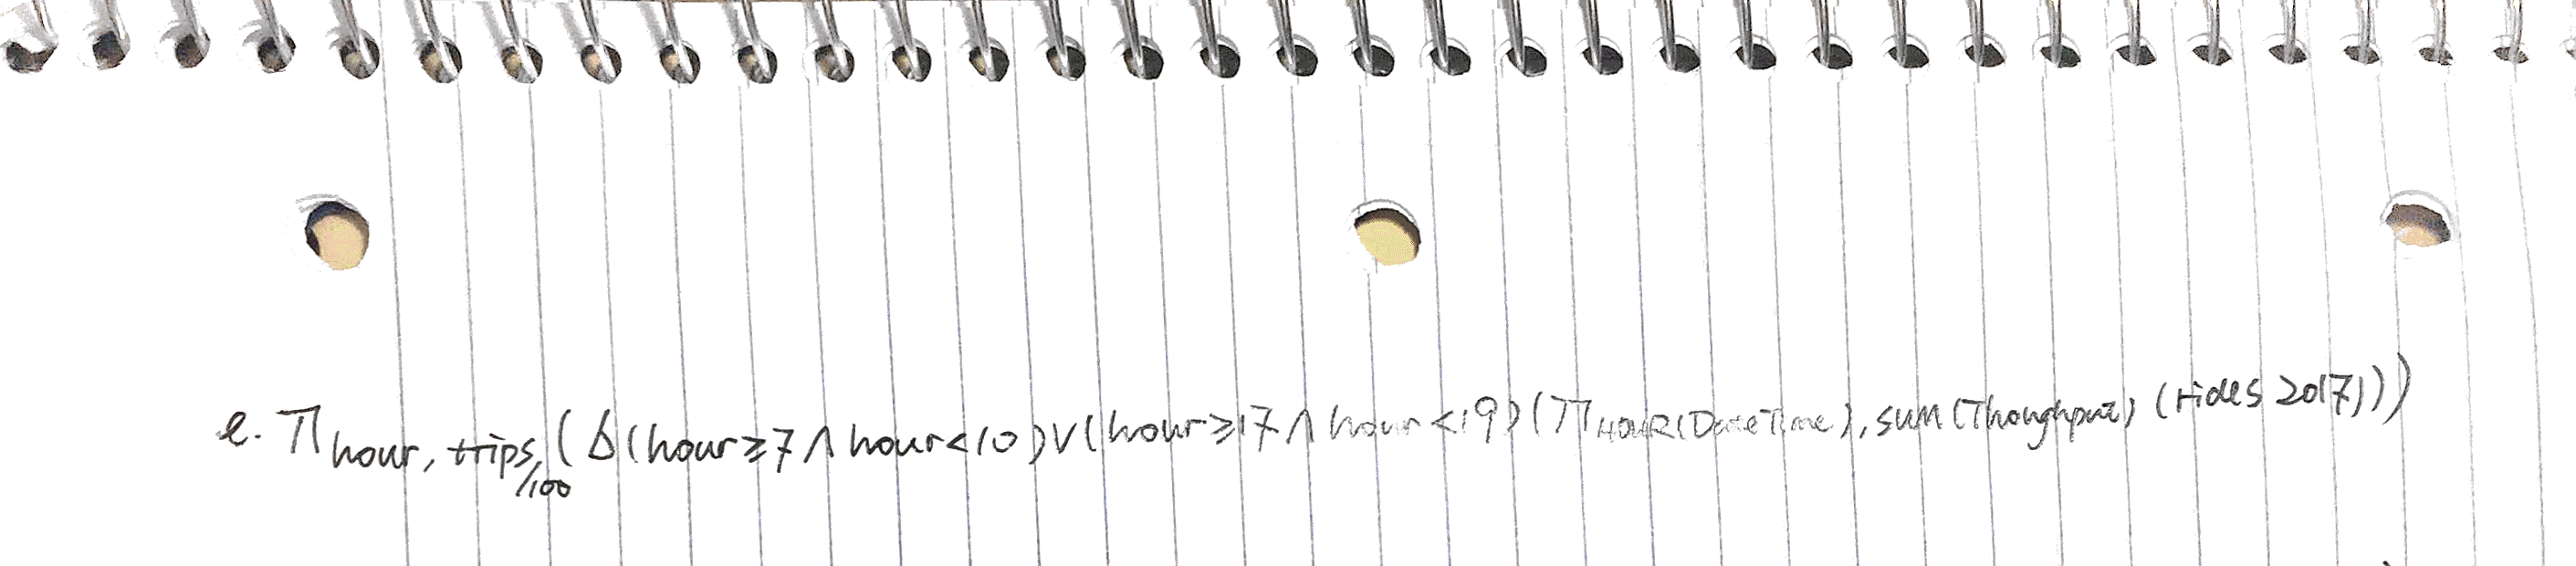 e. π hour, trips/100 (δ(hour≥7 ∧ hour<10)∨(hour≥17 ∧ hour<19)(π HOUR(DateTime), sum(Thoughput) (rides 2017)))